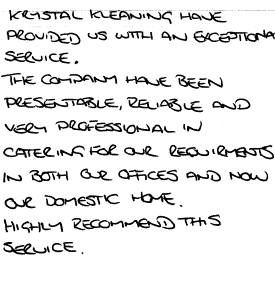 KRYSTAL KLEANING HAVE
PROVIDED US WITH AN EXCEPTIONA
SERVICE.
THE COMPANY HAVE BEEN
PRESENTABLE, RELIABLE AND
VERY PROFESSIONAL IN
CATERING FOR OUR REQUIRMENTS
IN BOTH OUR OFFICES AND NOW
OUR DOMESTIC HOME.
HIGHLY RECOMMEND THIS
SERVICE.